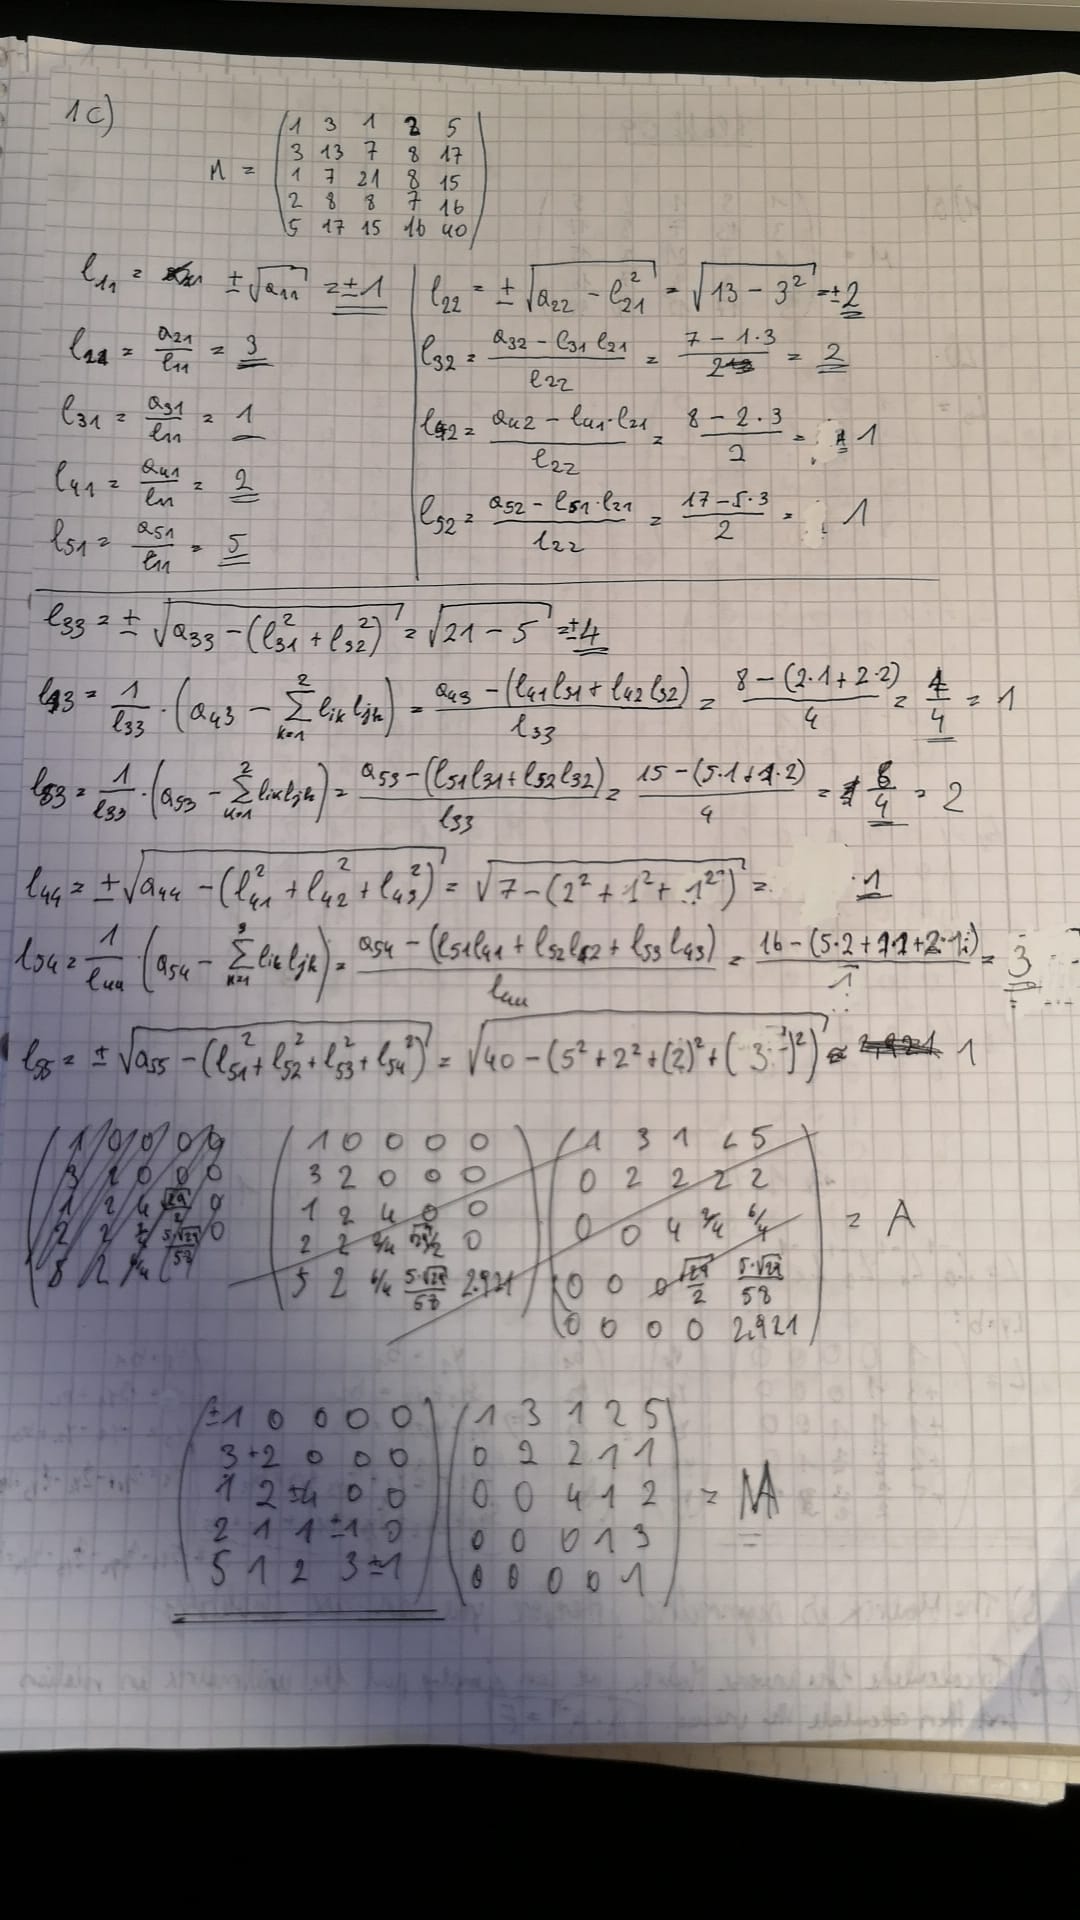 1c)
M = ( 1 3 1 2 5
3 13 7 8 17
1 7 21 8 15
2 8 8 7 16
5 17 15 16 40 )
l₁₁ = ±√a₁₁ = ±1
l₂₁ = a₂₁/l₁₁ = 3
l₃₁ = a₃₁/l₁₁ = 1
l₄₁ = a₄₁/l₁₁ = 2
l₅₁ = a₅₁/l₁₁ = 5
l₂₂ = ±√(a₂₂ - l₂₁²) = √(13 - 3²) = ±2
l₃₂ = (a₃₂ - l₃₁ l₂₁)/l₂₂ = (7 - 1·3)/2 = 2
l₄₂ = (a₄₂ - l₄₁·l₂₁)/l₂₂ = (8 - 2·3)/2 = 1
l₅₂ = (a₅₂ - l₅₁·l₂₁)/l₂₂ = (17 - 5·3)/2 = 1
l₃₃ = ±√(a₃₃ - (l₃₁² + l₃₂²)) = √(21 - 5) = ±4
l₄₃ = 1/l₃₃ · (a₄₃ - Σ_{k=1}^{2} l_{ik} l_{jk}) = (a₄₃ - (l₄₁l₃₁ + l₄₂l₃₂))/l₃₃ = (8 - (2·1 + 2·2))/4 = 4/4 = 1
l₅₃ = 1/l₃₃ · (a₅₃ - Σ_{k=1}^{2} l_{ik} l_{jk}) = (a₅₃ - (l₅₁l₃₁ + l₅₂l₃₂))/l₃₃ = (15 - (5·1 + 1·2))/4 = 8/4 = 2
l₄₄ = ±√(a₄₄ - (l₄₁² + l₄₂² + l₄₃²)) = √(7 - (2² + 1² + 1²)) = 1
l₅₄ = 1/l₄₄ (a₅₄ - Σ_{k=1}^{3} l_{ik} l_{jk}) = (a₅₄ - (l₅₁l₄₁ + l₅₂l₄₂ + l₅₃l₄₃))/l₄₄ = (16 - (5·2 + 1·1 + 2·1))/1 = 3
l₅₅ = ±√(a₅₅ - (l₅₁² + l₅₂² + l₅₃² + l₅₄²)) = √(40 - (5² + 2² + (2)² + (3)²)) = 1
( 1 0 0 0 0
3 2 0 0 0
1 2 4 0 0
2 2 2/4 √29/2 0
5 2 6/4 5·√29/58 2.921 )
( 1 3 1 2 5
0 2 2 2 2
0 0 4 2/4 6/4
0 0 0 √29/2 5·√29/58
0 0 0 0 2.921 ) = A
( ±1 0 0 0 0
3 ±2 0 0 0
1 2 ±4 0 0
2 1 1 ±1 0
5 1 2 3 ±1 )
( 1 3 1 2 5
0 2 2 1 1
0 0 4 1 2
0 0 0 1 3
0 0 0 0 1 ) = M